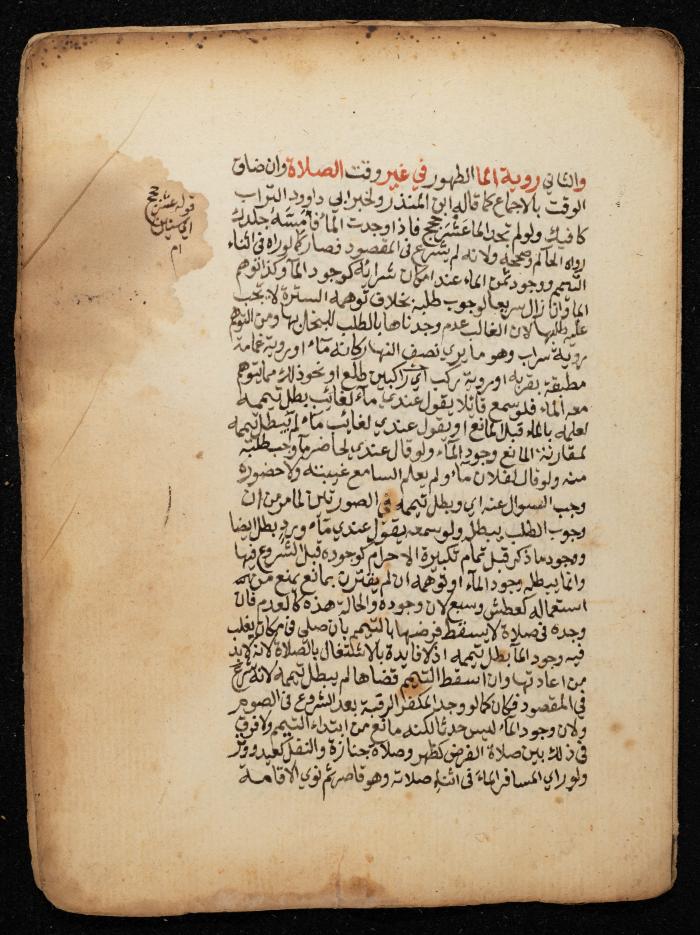 والثاني روية الما الطهور في غير وقت الصلاة وان ضاق
الوقت بالاجماع كما قاله ابن المنذر ولخبر ابي داوود التراب
كافيك ولو لم تجد الما عشر حجج فاذا وجدت الما فامسه جلدك
رواه الحاكم وصححه ولانه لم يشرع في المقصود فصار كما لو راه في اثناء
التيمم ووجود ثمن الماء عند امكان شرائه كوجود الماء وكذا توهم
الما وان زال سريعا لوجوب طلبه بخلاف توهمه السترة لا يجب
عليه طلبها لان الغالب عدم وجدناها بالطلب للبخل بها ومن التوهم
روية سراب وهو ما يري نصف النهار كانه ماء او روية غمامة
مطبقة بقربه او روية ركب اي راكبين طلع او نحو ذلك مما يتوهم
معه الماء فلو سمع قائلا يقول عندي ماء لغائب بطل تيممه
لعلمه بالماء قبل المانع او يقول عندي لغائب ماء لم يبطل تيممه
لمقارنة المانع وجود الماء ولو قال عندي لحاضر ماء وجب طلبه
منه ولو قال لفلان ماء ولم يعلم السامع غيبته ولا حضوره
وجب السوال عنه اي ويطل تيممه في الصورتين لما مر من ان
وجوب الطلب يبطل ولو سمعه يقول عندي ماء ورد بطل ايضا
ووجود ما ذكر قبل تمام تكبيرة الاحرام كوجوده قبل الشروع فيها
وانما يبطله وجود الماء او توهمه ان لم يقترن بمانع يمنع من
استعماله كعطش وسبع لان وجوده والحالة هذه كالعدم فان
وجده في صلاة لا يسقط فرضها بالتيمم بان صلى في مكان يغلب
فيه وجود الما بطل تيممه اذ لا فايدة بالاشتغال بالصلاة لانه لابد
من اعادتها وان اسقط التيمم قضاها لم يبطل تيممه لانه شرع
في المقصود فكان كما لو وجد المكفر الرقبة بعد الشروع في الصوم
ولان وجود الماء ليس حدثا لكنه مانع من ابتداء التيمم ولا فرق
في ذلك بين صلاة الفرض كظهر وصلاة جنازة والنفل كعيد ووتر
ولو راي المسافر الماء في اثناء صلاته وهو قاصر ثم نوي الاقامة
قوله عشر حجج
ام